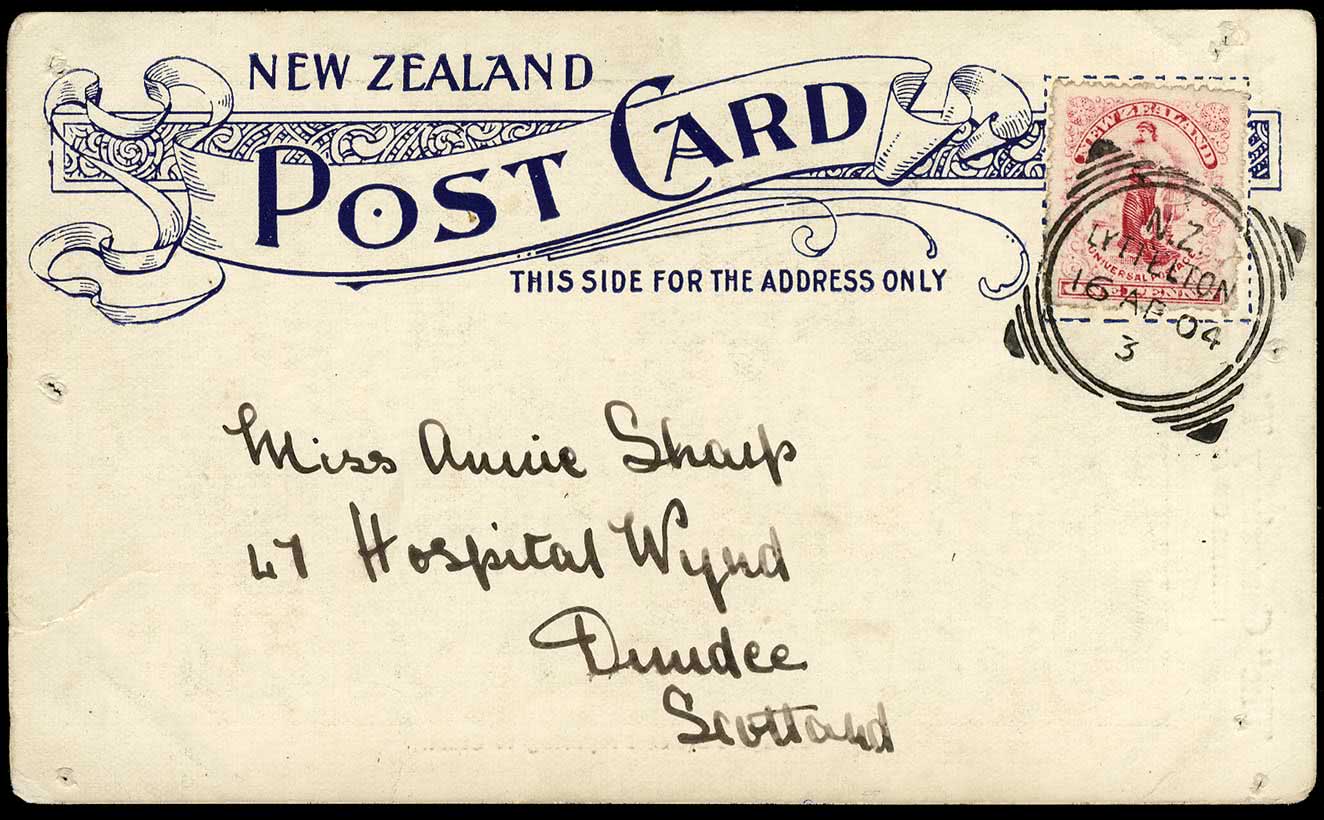 NEW ZEALAND
POST CARD
THIS SIDE FOR THE ADDRESS ONLY
NEW ZEALAND
UNIVERSAL
N.Z.
LYTTELTON
16 AP 04
3
Miss Annie Sharp
47 Hospital Wynd
Dundee
Scotland